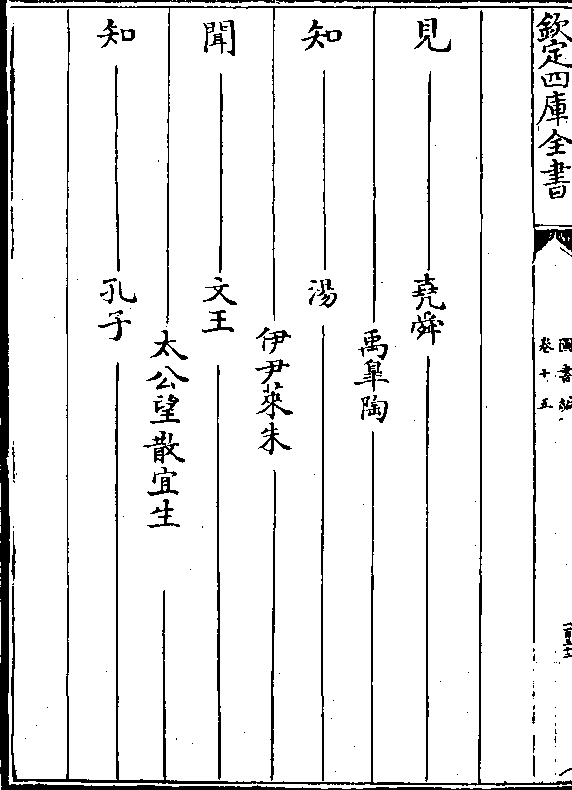 欽定四庫全書
圖書編
卷十五
見 堯舜
禹臯陶
知 湯
伊尹萊朱
聞 文王
太公望散宜生
知 孔子